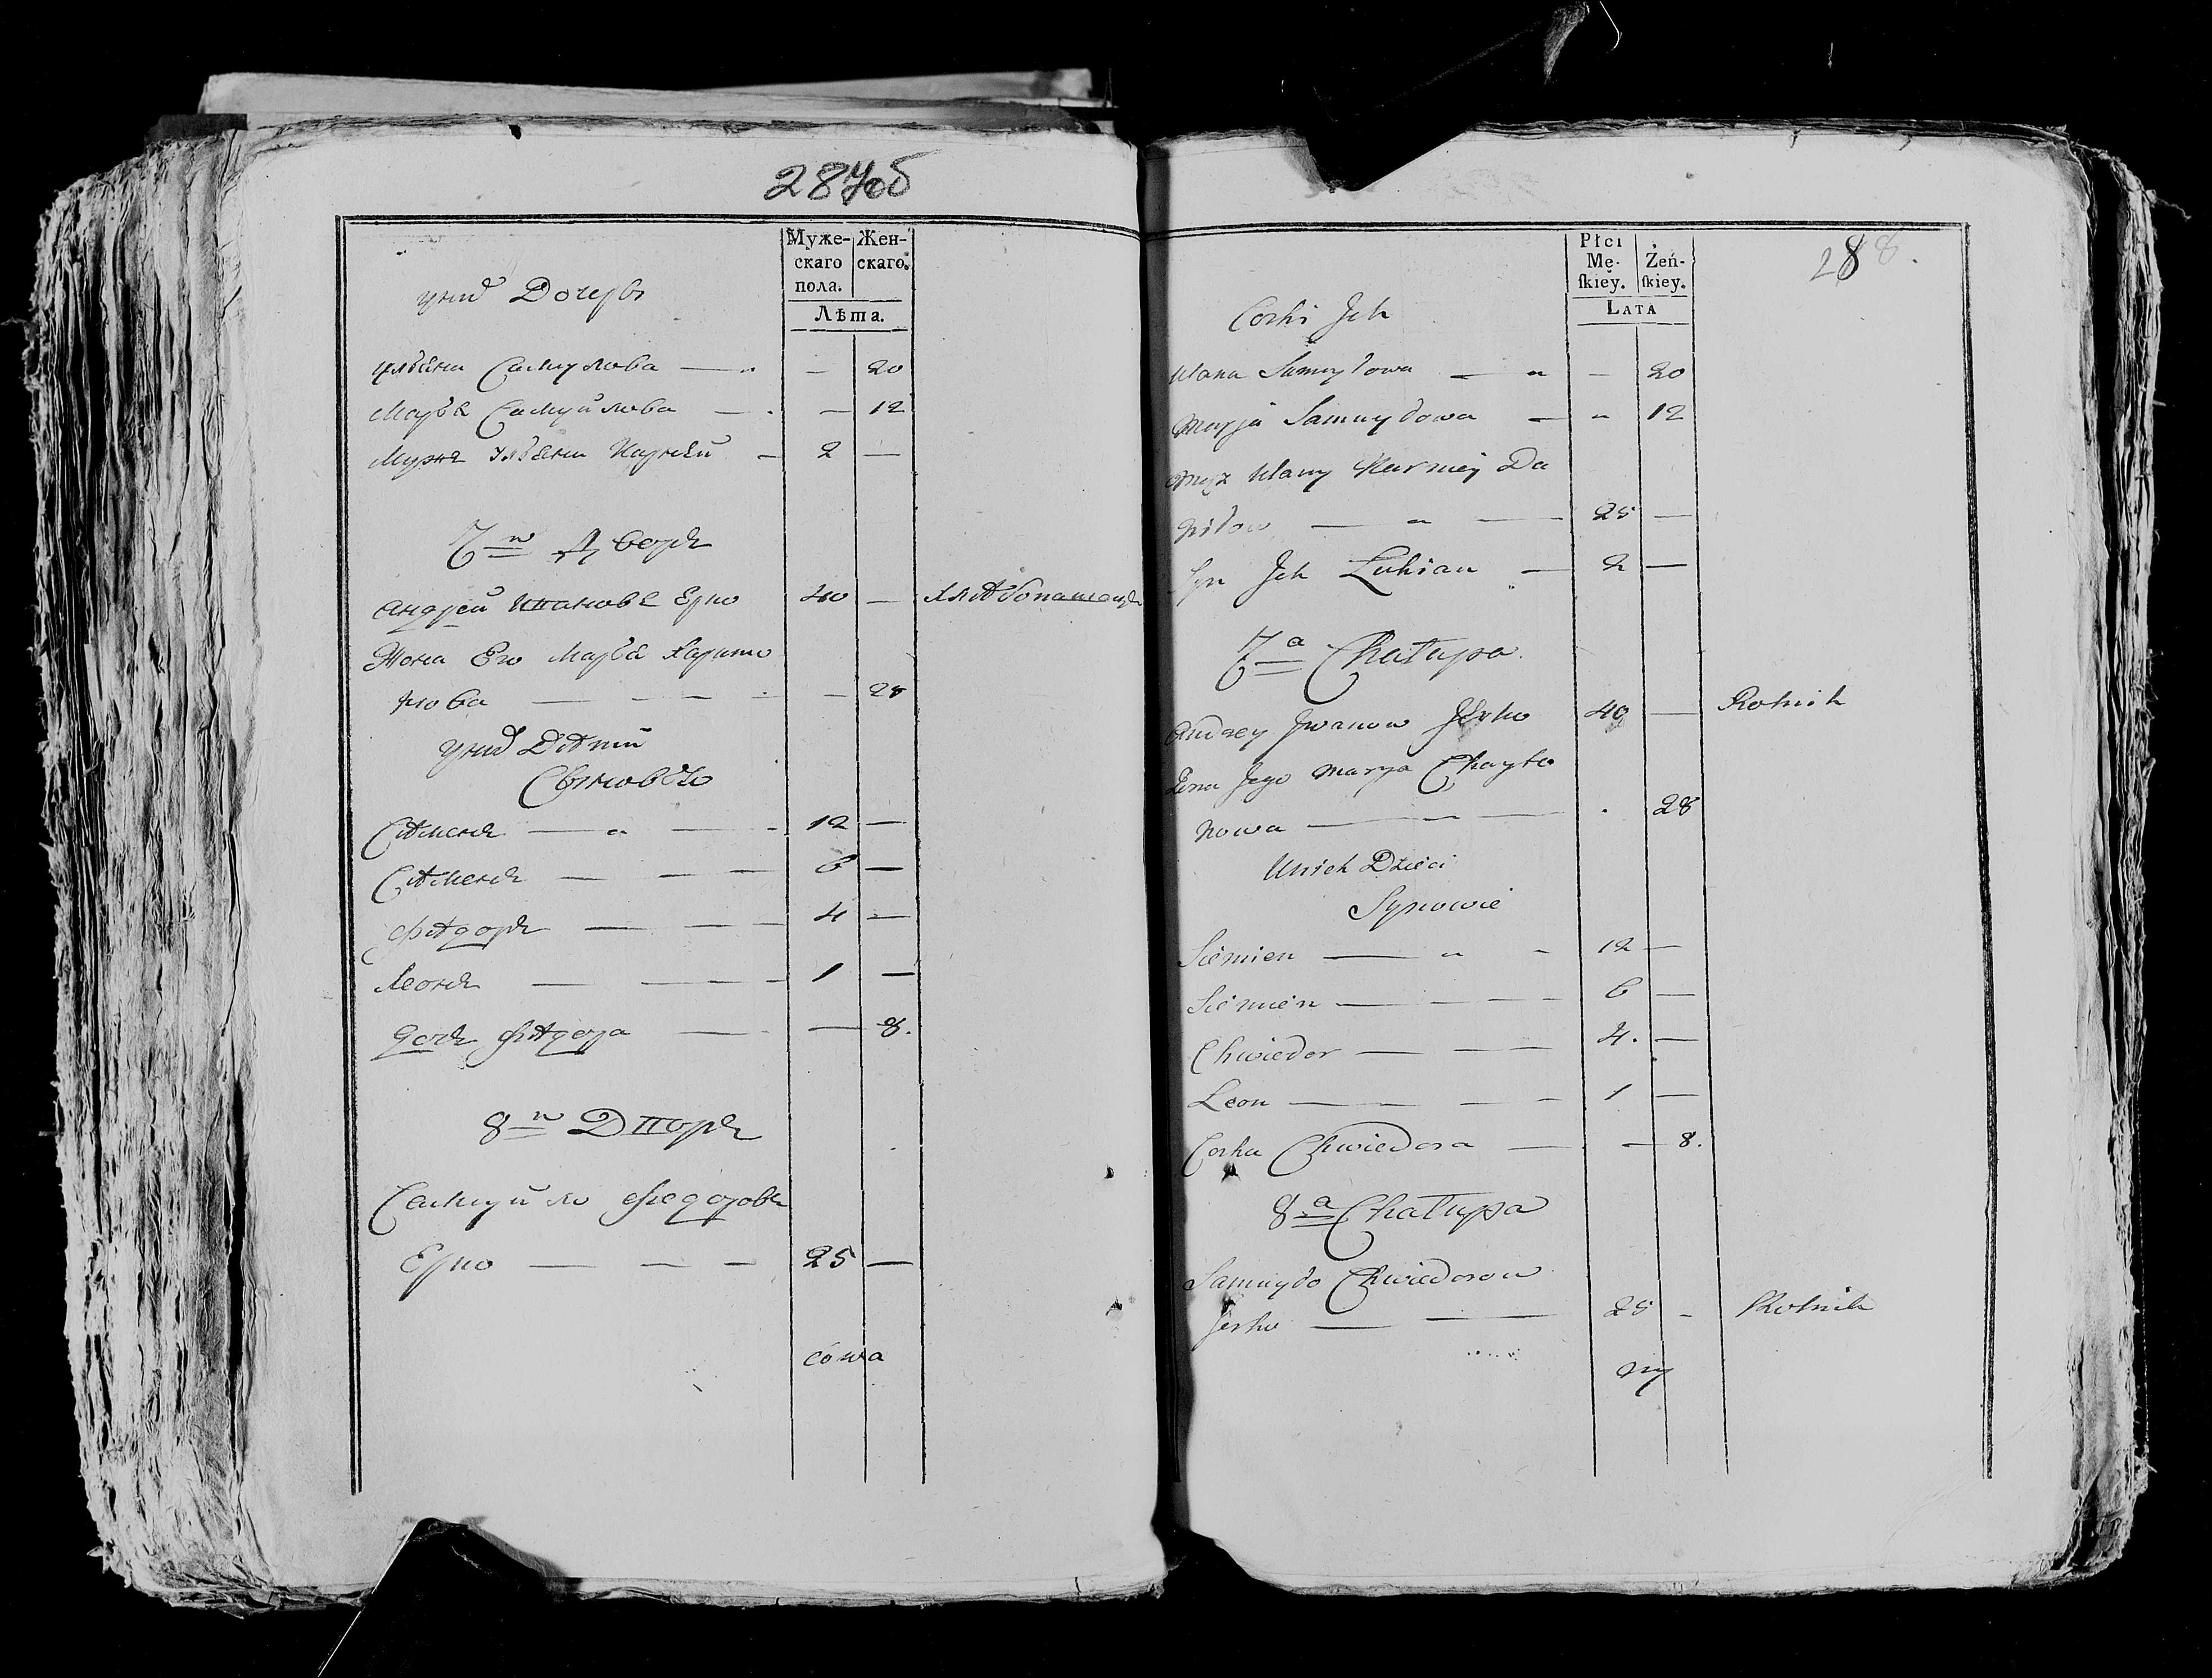 287об
Муже- Жен-
скаго скаго.
пола.
Лѣта.
уних Дочерь
Ульяни Самулова — „ — 20
Марья Самуйлова — — 12
Мужъ Ульяни Карней — 2 —
7й Дворъ
Андрей Ивановъ Ерко 40 — хлѣбопашецъ
Жона Его Марья Харито
нова — — — — — 28
уних Дѣтий
Сыновьо
Сѣменъ — „ — 12 —
Сѣменъ — — — 6 —
Фѣдоръ — — — 4 —
Леонъ — — — 1 —
дочь Фѣдора — — 8.
8й Дворъ
Самуйло Федоровъ
Ерко — — — 25 —
cowa
288.
Płci
Mę- Żeń-
ſkiey. ſkiey.
Lata
Corki Ich
Ulana Samuylowa — „ — 20
Maryja Samuyłowa — „ 12
Mąż Ulany Karniey Da
niłow — „ — 25 —
Syn Ich Łukian — 2 —
7a Chałupa
Andrey Iwanow Jerko 40 — Rolnik
Żona Jego Marya Charyto
nowa — „ — . 28
Unich Dzieci
Synowie
Siemien — „ - 12 —
Siemien — — — 6 —
Chwiedor — — — 4. —
Leon — — — 1 —
Corka Chwiedora — — 8.
8a Chałupa
Samuyło Chwiedorow
Jerko — — 25 - Rolnik